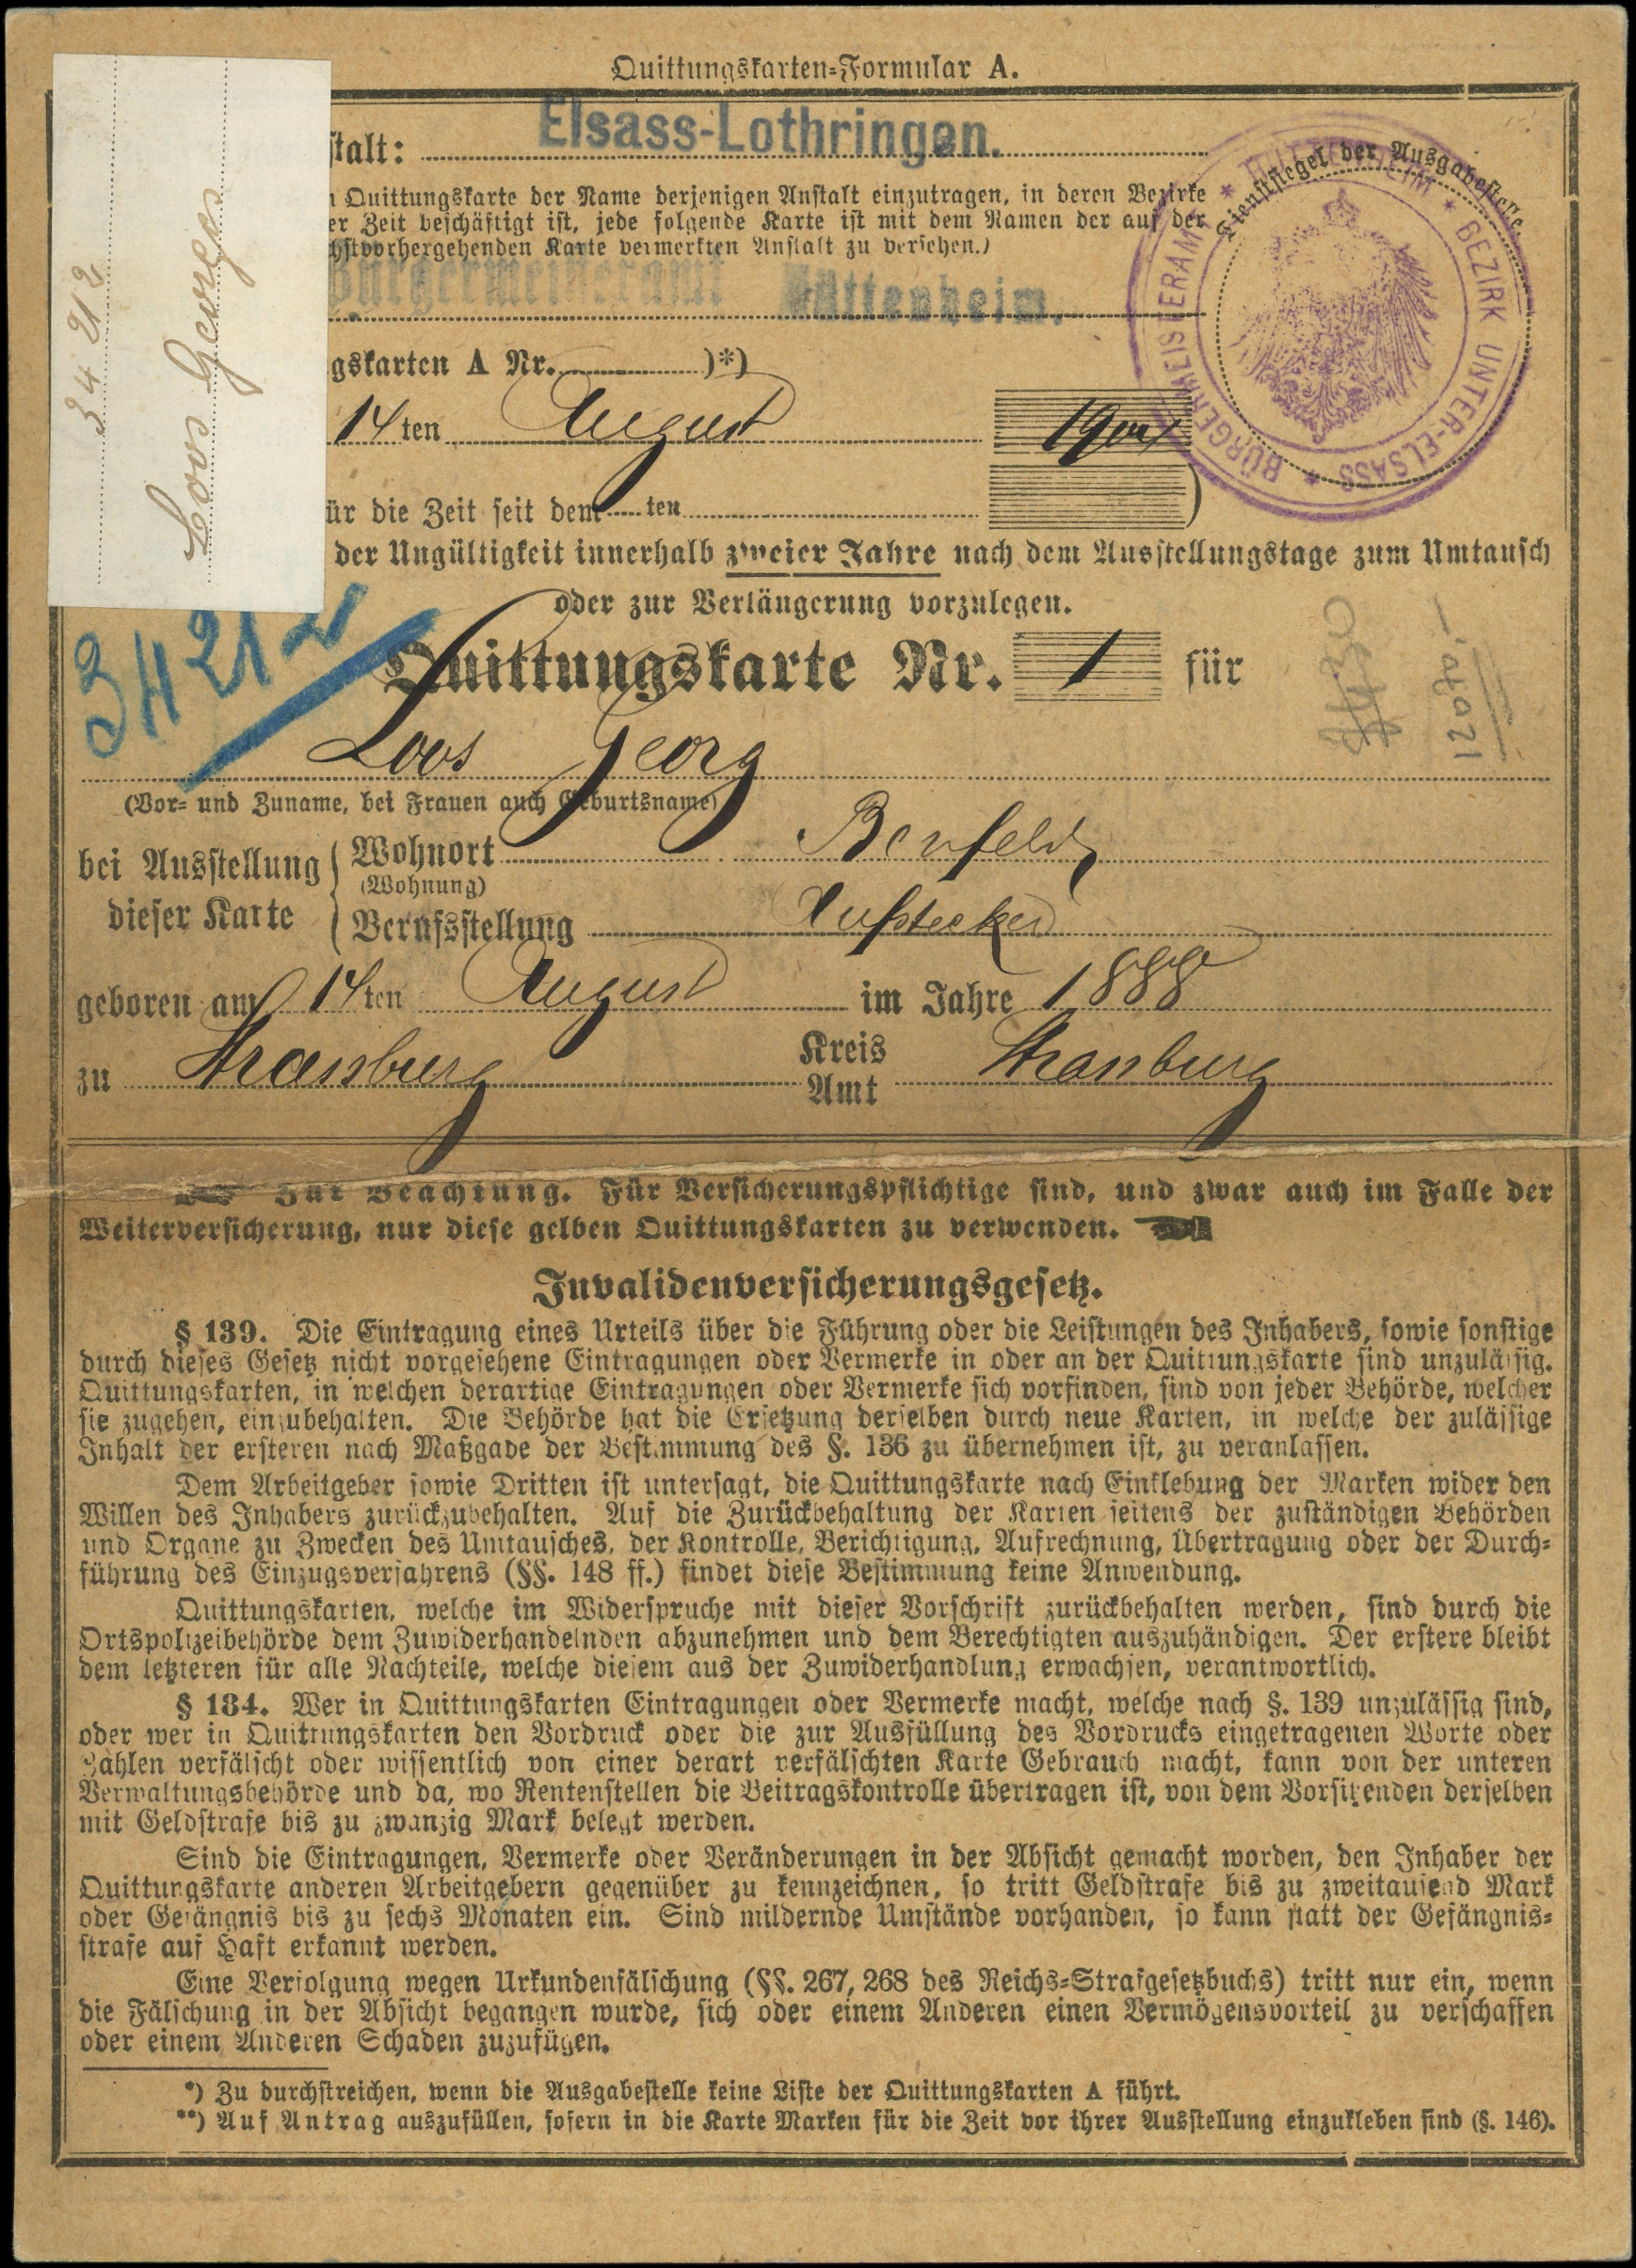 Quittungskarten-Formular A.
34 212
Loos Georges
stalt: Elsass-Lothringen.
Quittungskarte der Name derjenigen Anstalt einzutragen, in deren Bezirke
er Zeit beschäftigt ist, jede folgende Karte ist mit dem Namen der auf der
hstvorhergehenden Karte vermerkten Anstalt zu versehen.)
Bürgermeisteramt Hüttenheim.
Dienstsiegel der Ausgabestelle.
BÜRGERMEISTERAMT * HÜTTENHEIM * BEZIRK UNTER-ELSASS *
gskarten A Nr. )*)
14ten August
ür die Zeit seit dem ten )
der Ungültigkeit innerhalb zweier Jahre nach dem Ausstellungstage zum Umtausch
oder zur Verlängerung vorzulegen.
34212
Quittungskarte Nr. 1 für
Loos Georg
(Vor- und Zuname, bei Frauen auch Geburtsname)
bei Ausstellung dieser Karte
Wohnort Benfeld
(Wohnung)
Berufsstellung
geboren am 14ten August im Jahre 1888
zu Strassburg Kreis Amt Strassburg
Zur Beachtung. Für Versicherungspflichtige sind, und zwar auch im Falle der
Weiterversicherung, nur diese gelben Quittungskarten zu verwenden.
Invalidenversicherungsgesetz.
§ 139. Die Eintragung eines Urteils über die Führung oder die Leistungen des Inhabers, sowie sonstige
durch dieses Gesetz nicht vorgesehene Eintragungen oder Vermerke in oder an der Quittungskarte sind unzulässig.
Quittungskarten, in welchen derartige Eintragungen oder Vermerke sich vorfinden, sind von jeder Behörde, welcher
sie zugehen, einzubehalten. Die Behörde hat die Ersetzung derselben durch neue Karten, in welche der zulässige
Inhalt der ersteren nach Maßgabe der Bestimmung des §. 136 zu übernehmen ist, zu veranlassen.
Dem Arbeitgeber sowie Dritten ist untersagt, die Quittungskarte nach Einklebung der Marken wider den
Willen des Inhabers zurückzubehalten. Auf die Zurückbehaltung der Karten seitens der zuständigen Behörden
und Organe zu Zwecken des Umtausches, der Kontrolle, Berichtigung, Aufrechnung, Übertragung oder der Durch-
führung des Einzugsverfahrens (§§. 148 ff.) findet diese Bestimmung keine Anwendung.
Quittungskarten, welche im Widerspruche mit dieser Vorschrift zurückbehalten werden, sind durch die
Ortspolizeibehörde dem Zuwiderhandelnden abzunehmen und dem Berechtigten auszuhändigen. Der erstere bleibt
dem letzteren für alle Nachteile, welche diesem aus der Zuwiderhandlung erwachsen, verantwortlich.
§ 184. Wer in Quittungskarten Eintragungen oder Vermerke macht, welche nach §. 139 unzulässig sind,
oder wer in Quittungskarten den Vordruck oder die zur Ausfüllung des Vordrucks eingetragenen Worte oder
Zahlen verfälscht oder wissentlich von einer derart verfälschten Karte Gebrauch macht, kann von der unteren
Verwaltungsbehörde und da, wo Rentenstellen die Beitragskontrolle übertragen ist, von dem Vorsitzenden derselben
mit Geldstrafe bis zu zwanzig Mark belegt werden.
Sind die Eintragungen, Vermerke oder Veränderungen in der Absicht gemacht worden, den Inhaber der
Quittungskarte anderen Arbeitgebern gegenüber zu kennzeichnen, so tritt Geldstrafe bis zu zweitausend Mark
oder Gefängnis bis zu sechs Monaten ein. Sind mildernde Umstände vorhanden, so kann statt der Gefängnis-
strafe auf Haft erkannt werden.
Eine Verfolgung wegen Urkundenfälschung (§§. 267, 268 des Reichs-Strafgesetzbuchs) tritt nur ein, wenn
die Fälschung in der Absicht begangen wurde, sich oder einem Anderen einen Vermögensvorteil zu verschaffen
oder einem Anderen Schaden zuzufügen.
*) Zu durchstreichen, wenn die Ausgabestelle keine Liste der Quittungskarten A führt.
**) Auf Antrag auszufüllen, sofern in die Karte Marken für die Zeit vor ihrer Ausstellung einzukleben sind (§. 146).